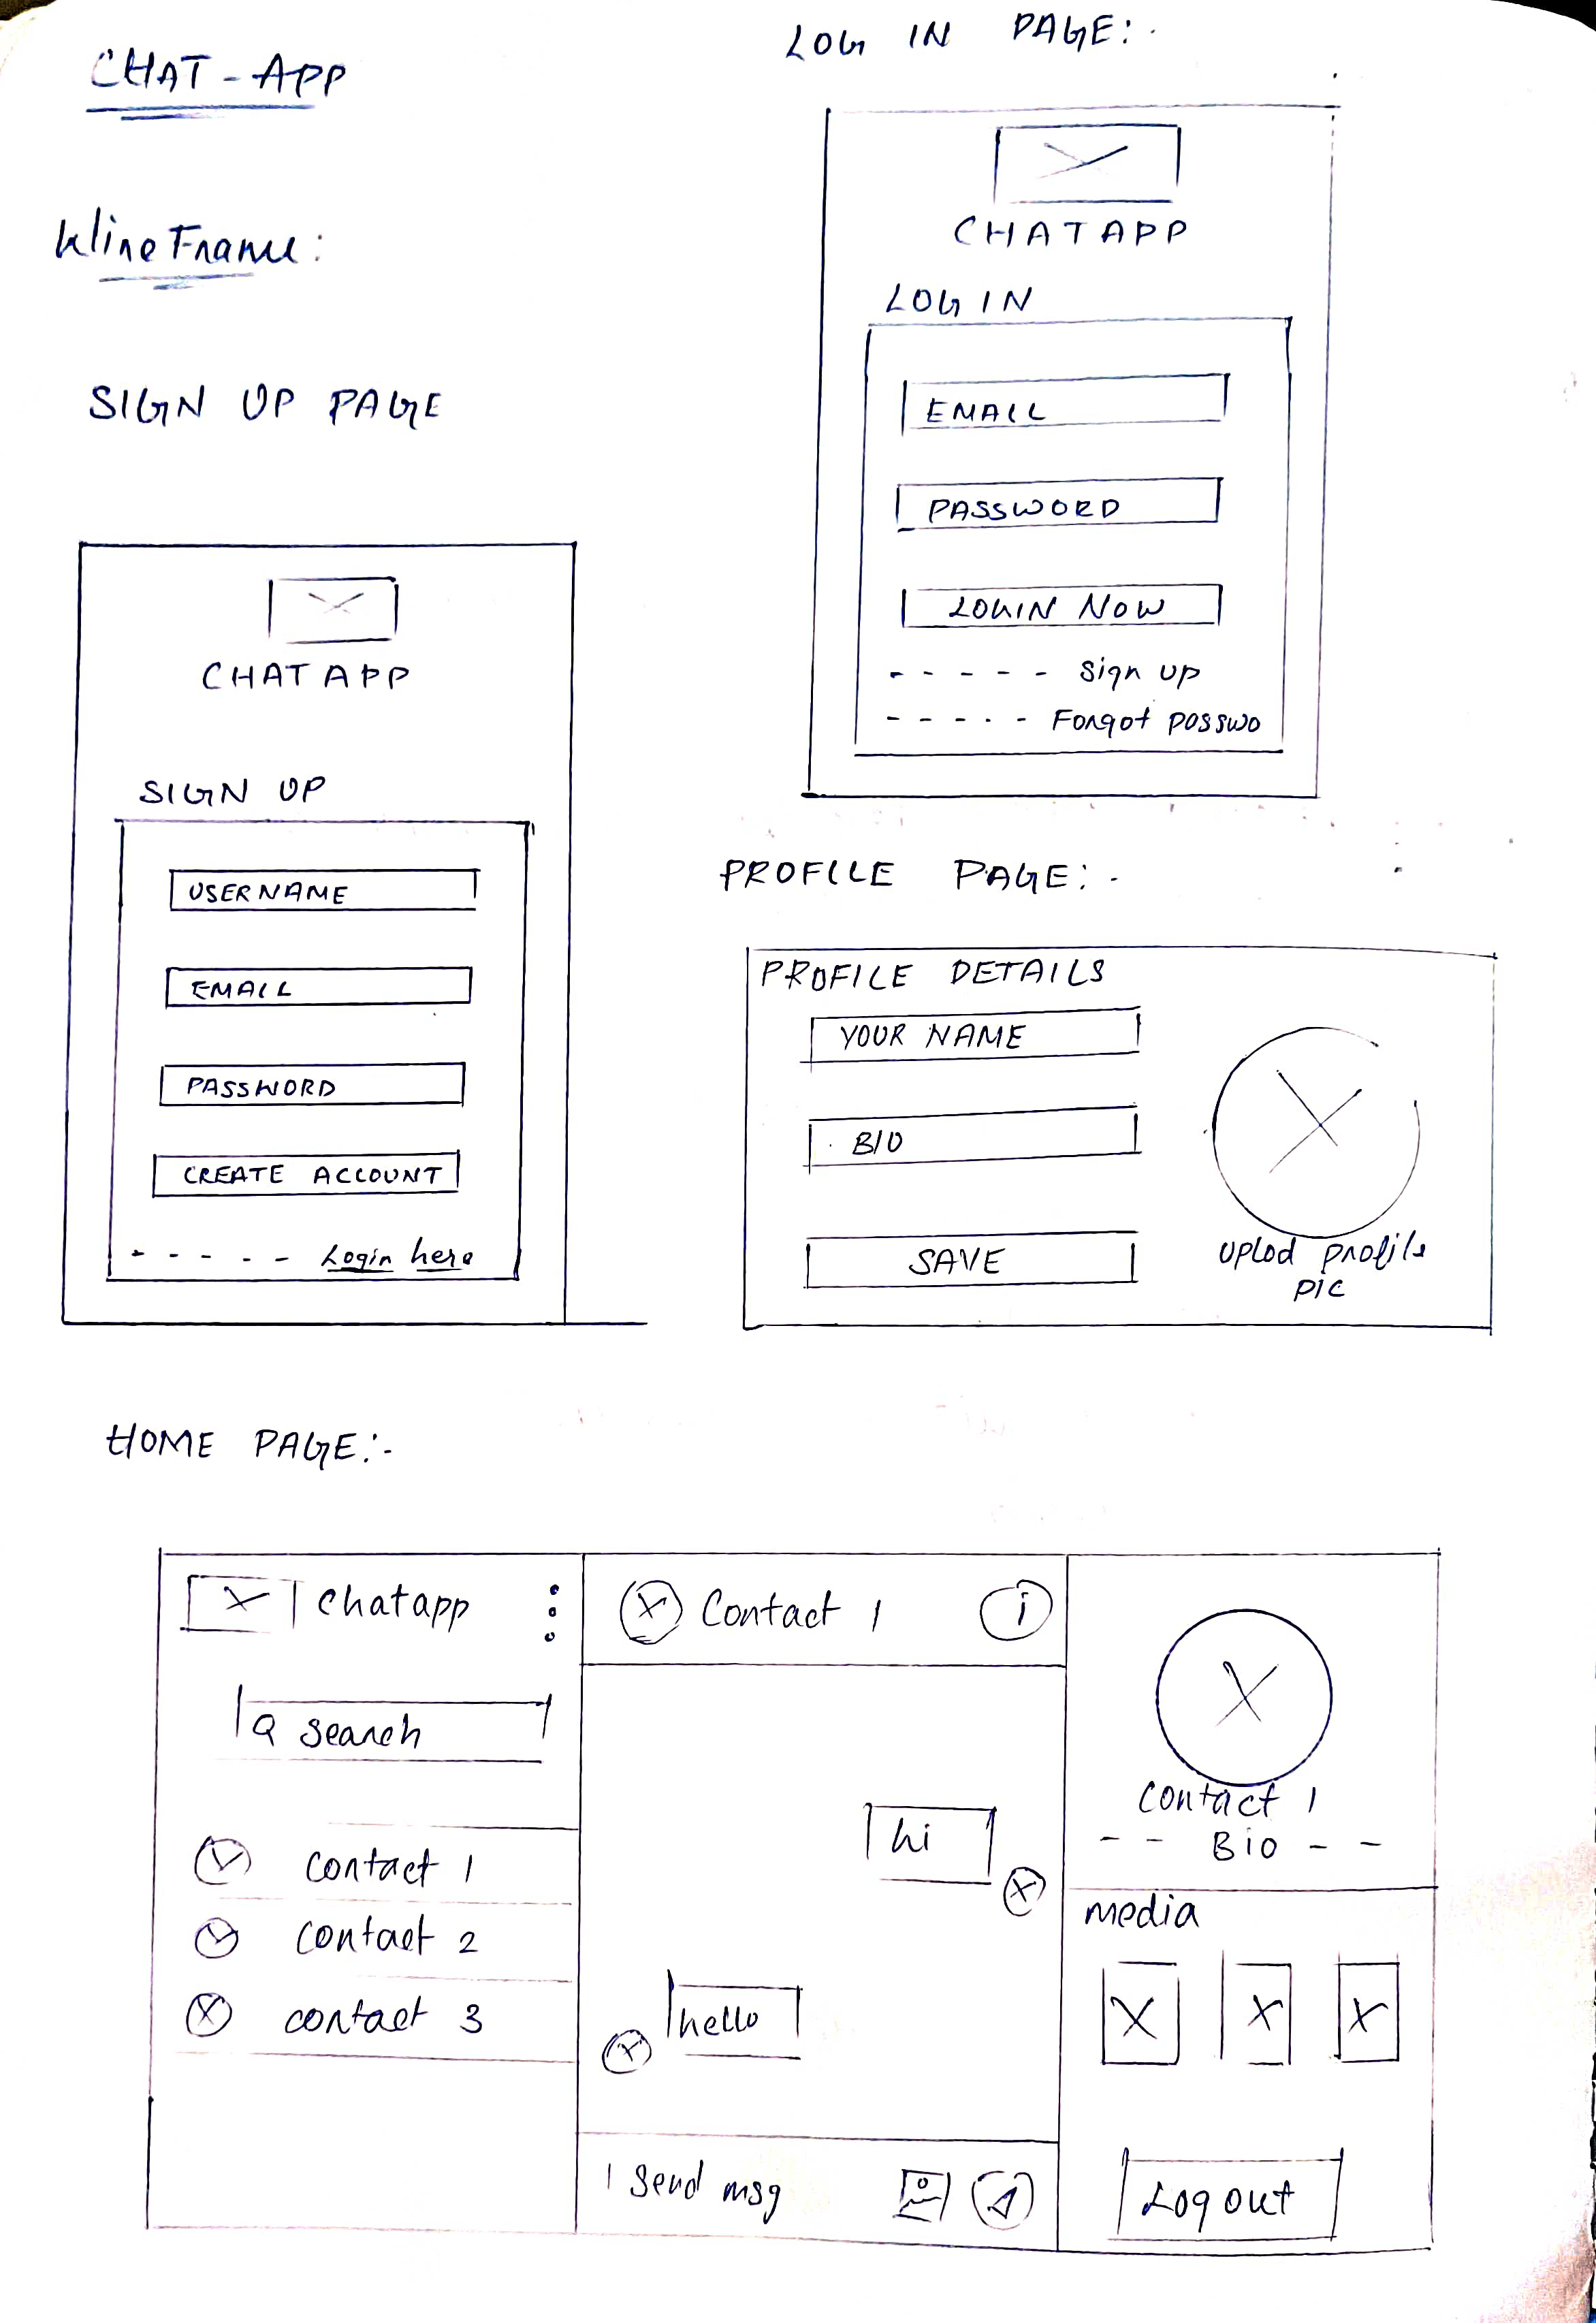 CHAT-APP
WireFrame:
SIGN UP PAGE
CHAT APP
SIGN UP
USERNAME
EMAIL
PASSWORD
CREATE ACCOUNT
- - - - - Login here
LOG IN PAGE:-
CHATAPP
LOGIN
EMAIL
PASSWORD
LOGIN NOW
- - - - - Sign up
- - - - - Forgot passwo
PROFILE PAGE:-
PROFILE DETAILS
YOUR NAME
BIO
SAVE
Uplod profile
pic
HOME PAGE:-
chatapp
search
contact 1
contact 2
contact 3
Contact 1
i
hi
hello
Send msg
Contact 1
- - Bio - -
media
Logout